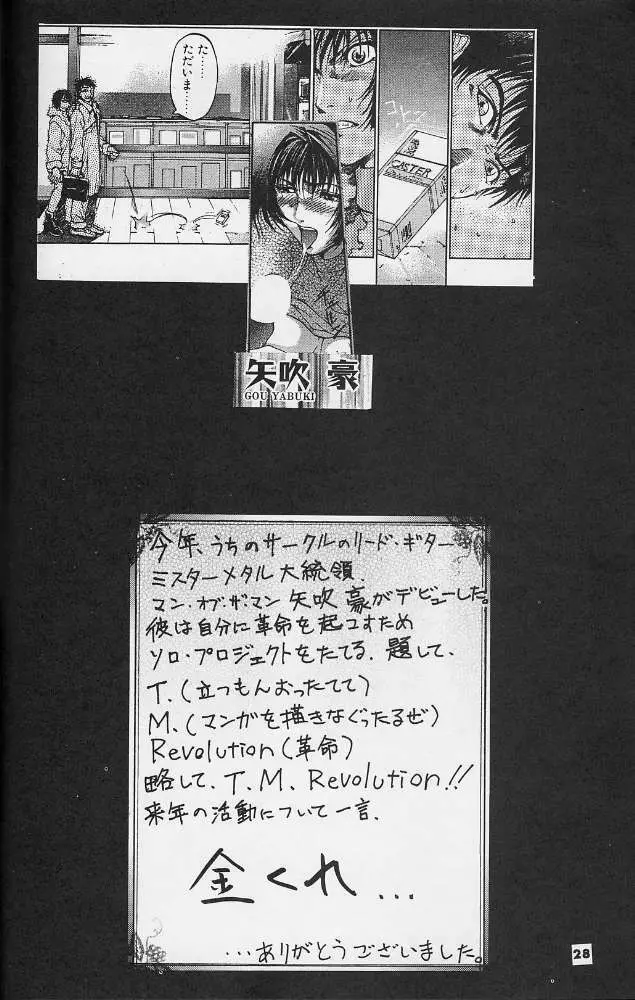 た……
ただいま…
コトッ
CASTER
矢吹 豪
GOU YABUKI
今年、うちのサークルのリード・ギター
ミスターメタル大統領、
マン・オブ・ザ・マン 矢吹 豪がデビューした。
彼は自分に革命を起コすため
ソロ・プロジェクトをたてる、題して、
T.(立つもんおったてて)
M.(マンガを描きなぐったるぜ)
Revolution(革命)
略して、T.M.Revolution!!
来年の活動について一言、
金くれ…
…ありがとうございました。
28